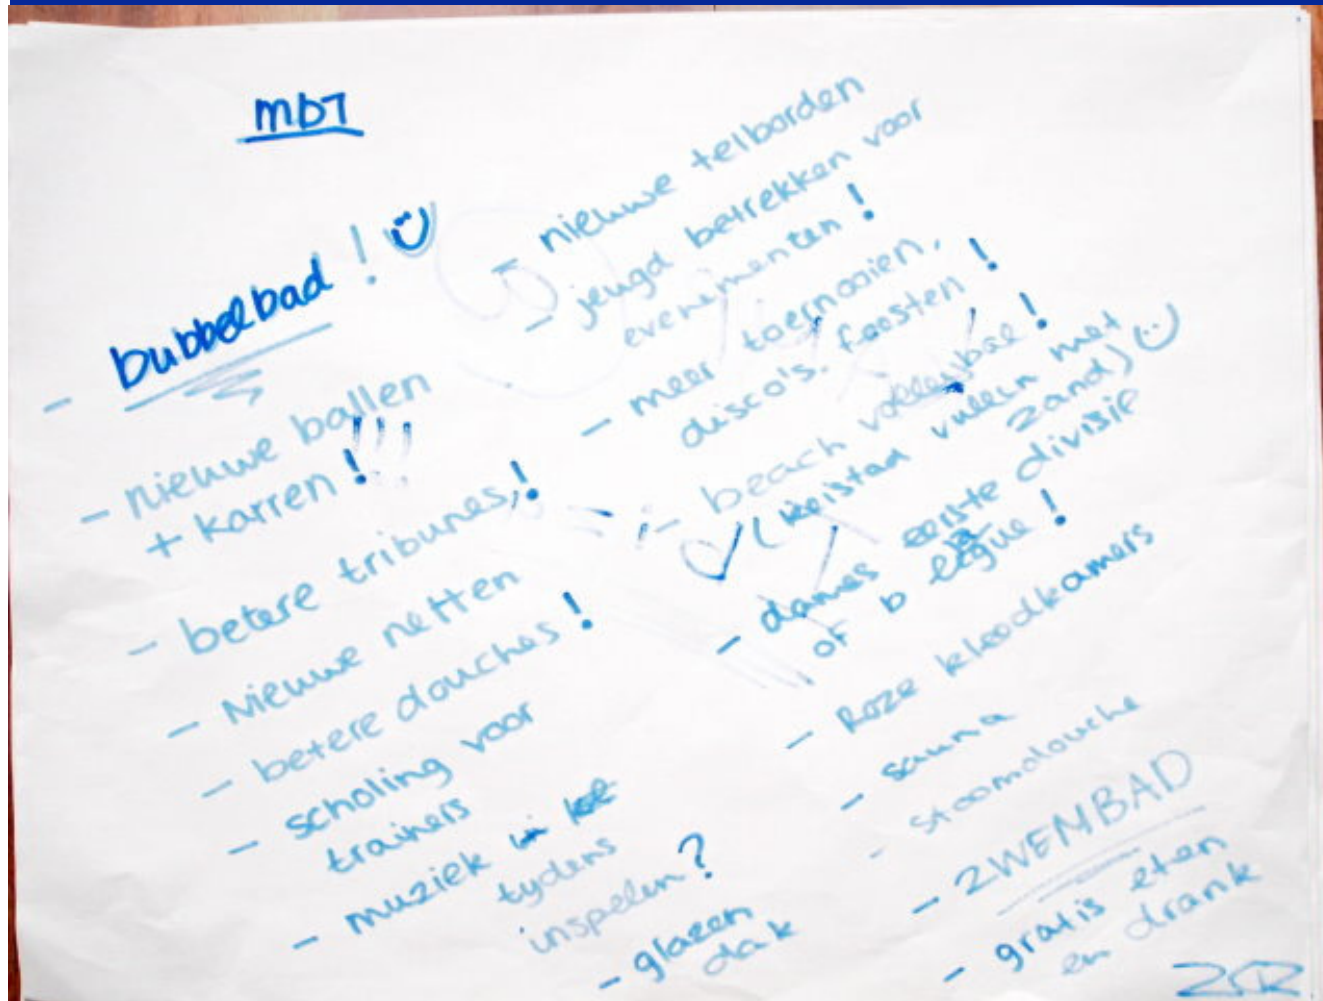 mb7
- bubbelbad !
- nieuwe ballen
+ karren !!!!
- betere tribunes,!
- Nieuwe netten
- betere douches !
- scholing voor
trainers
- muziek
tydens
inspelen?
- glazen
dak
nieuwe telborden
- jeugd betrekken voor
evenementen !
- meer toernooien,
disco's. feesten !
- beach volleybal !
(Keistad vullen met
zand)
- dames eerste divisie
of b !
- Roze kleedkamers
- sauna
- stoomdouche
- ZWEMBAD
- gratis eten
en drank